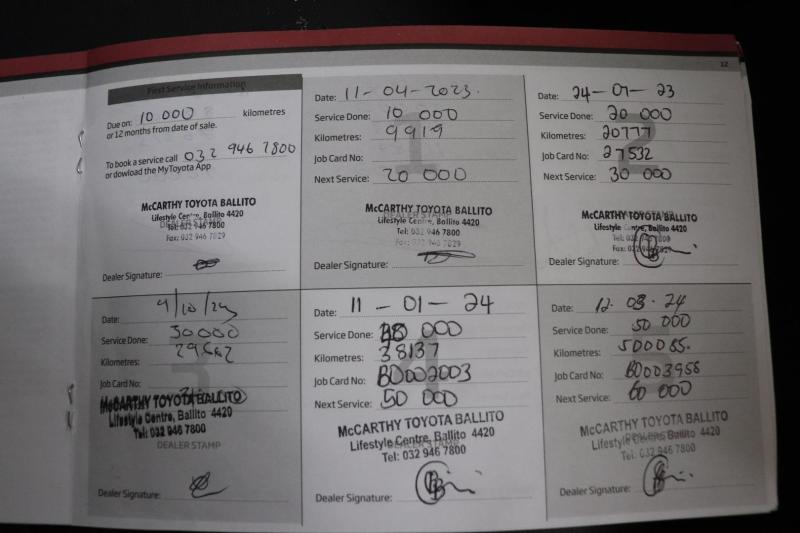 12
First Service Information
Due on: 10 000 kilometres
or 12 months from date of sale.
To book a service call 032 946 7800
or dowload the MyToyota App
McCARTHY TOYOTA BALLITO
Lifestyle Centre, Ballito 4420
Tel: 032 946 7800
Fax: 032 946 7829
DEALER STAMP
Dealer Signature:
Date: 11-04-2023.
Service Done: 10 000
Kilometres: 9919
Job Card No:
Next Service: 20 000
1
McCARTHY TOYOTA BALLITO
Lifestyle Centre, Ballito 4420
Tel: 032 946 7800
Fax: 032 946 7829
DEALER STAMP
Dealer Signature:
Date: 24-07-23
Service Done: 20 000
Kilometres: 20777
Job Card No: 27532
Next Service: 30 000
2
McCARTHY TOYOTA BALLITO
Lifestyle Centre, Ballito 4420
Tel: 032 946 7800
Fax: 032 946 7829
Dealer Signature:
Date:
Service Done: 30000
Kilometres:
Job Card No:
3
McCARTHY TOYOTA BALLITO
Lifestyle Centre, Ballito 4420
Tel: 032 946 7800
DEALER STAMP
Dealer Signature:
Date: 11-01-24
Service Done: 000
Kilometres: 38137
Job Card No: BD002003
Next Service: 50 000
McCARTHY TOYOTA BALLITO
Lifestyle Centre, Ballito 4420
Tel: 032 946 7800
DEALER STAMP
Dealer Signature:
Date: 12.03.24
Service Done: 50 000
Kilometres: 500085.
Job Card No: BD003958
Next Service: 60 000
5
McCARTHY TOYOTA BALLITO
Lifestyle Centre, Ballito 4420
Tel: 032 946 7800
DEALER STAMP
Dealer Signature: